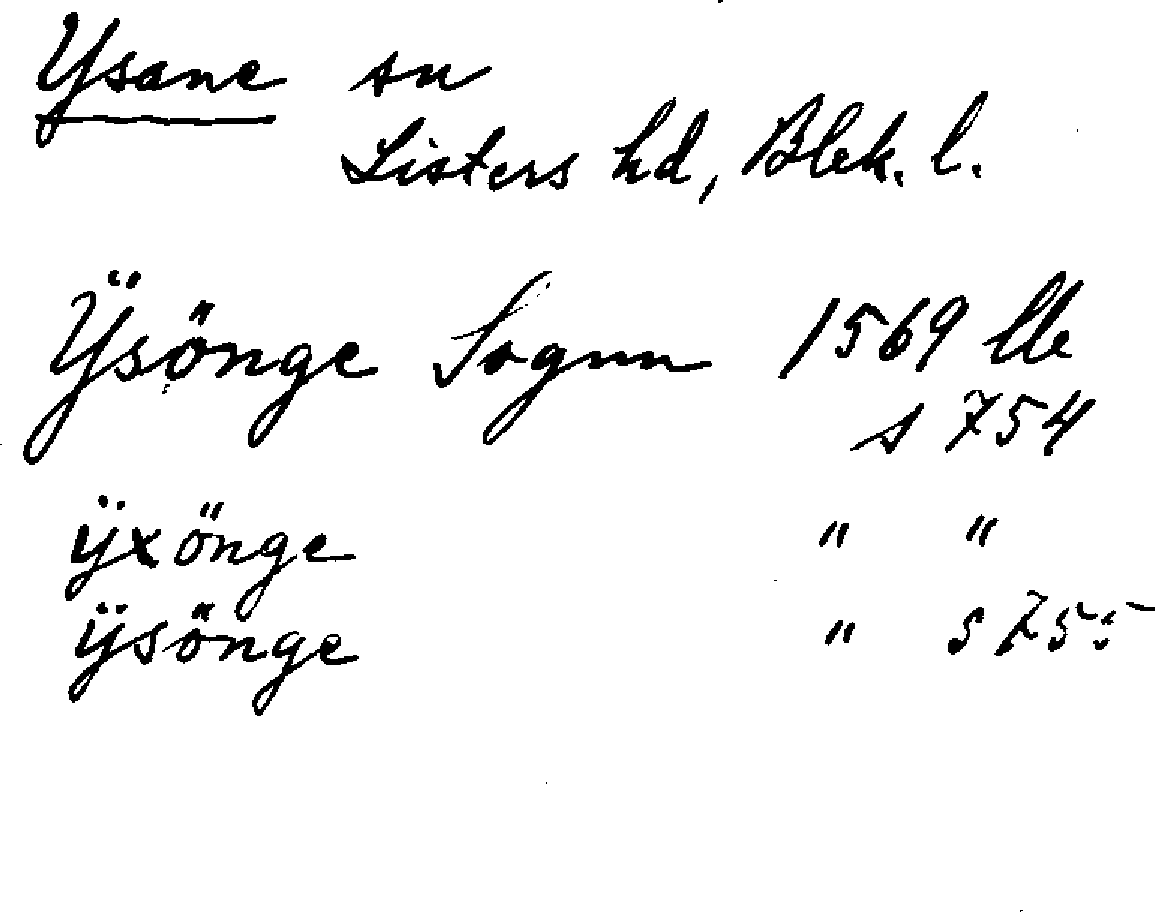 Ysane sn
Listers hd, Blek. l.
Ÿsönge Sognn 1569 llb
s 754
ÿxönge " "
ÿsönge " s 755